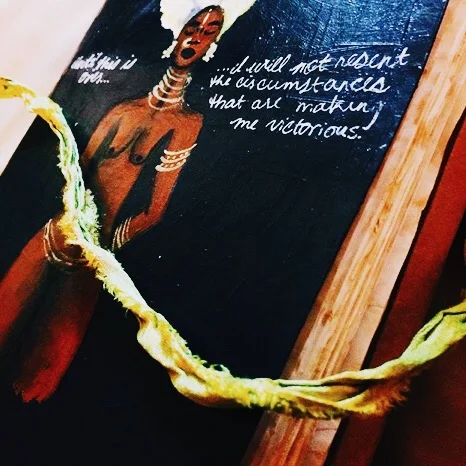 until this is
over...
...I will not resent
the circumstances
that are making
me victorious.